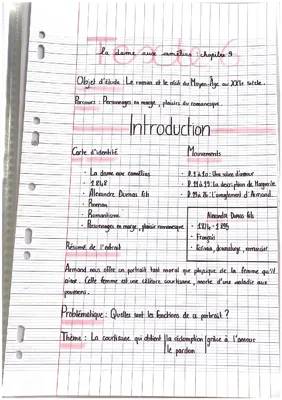 Texte 6
La dame aux camélias : chapitre 9
Objet d'étude : Le roman et le récit du Moyen-Âge au XXIe siècle.
Parcours : Personnages en marge, plaisirs du romanesque.
Introduction
Carte d'identité
· La dame aux camélias
· 1848
· Alexandre Dumas fils
· Roman
· Romantisme
· Personnages en marge, plaisir romanesque
Mouvements
· P.1 à 10 : Une valeur d'amour
· P.11 à 19 : La description de Marguerite
· P.19 à 26 : L'aveuglement d'Armand
Alexandre Dumas fils
· 1824 - 1895
· Français
· Écrivain, dramaturge, romancier
Résumé de l'extrait
Armand nous offre un portrait tant moral que physique de la femme qu'il
aime. Cette femme est une célèbre courtisane, morte d'une maladie aux
poumons.
Problématique : Quelles sont les fonctions de ce portrait ?
Thème : La courtisane qui obtient la rédemption grâce à l'amour
le pardon